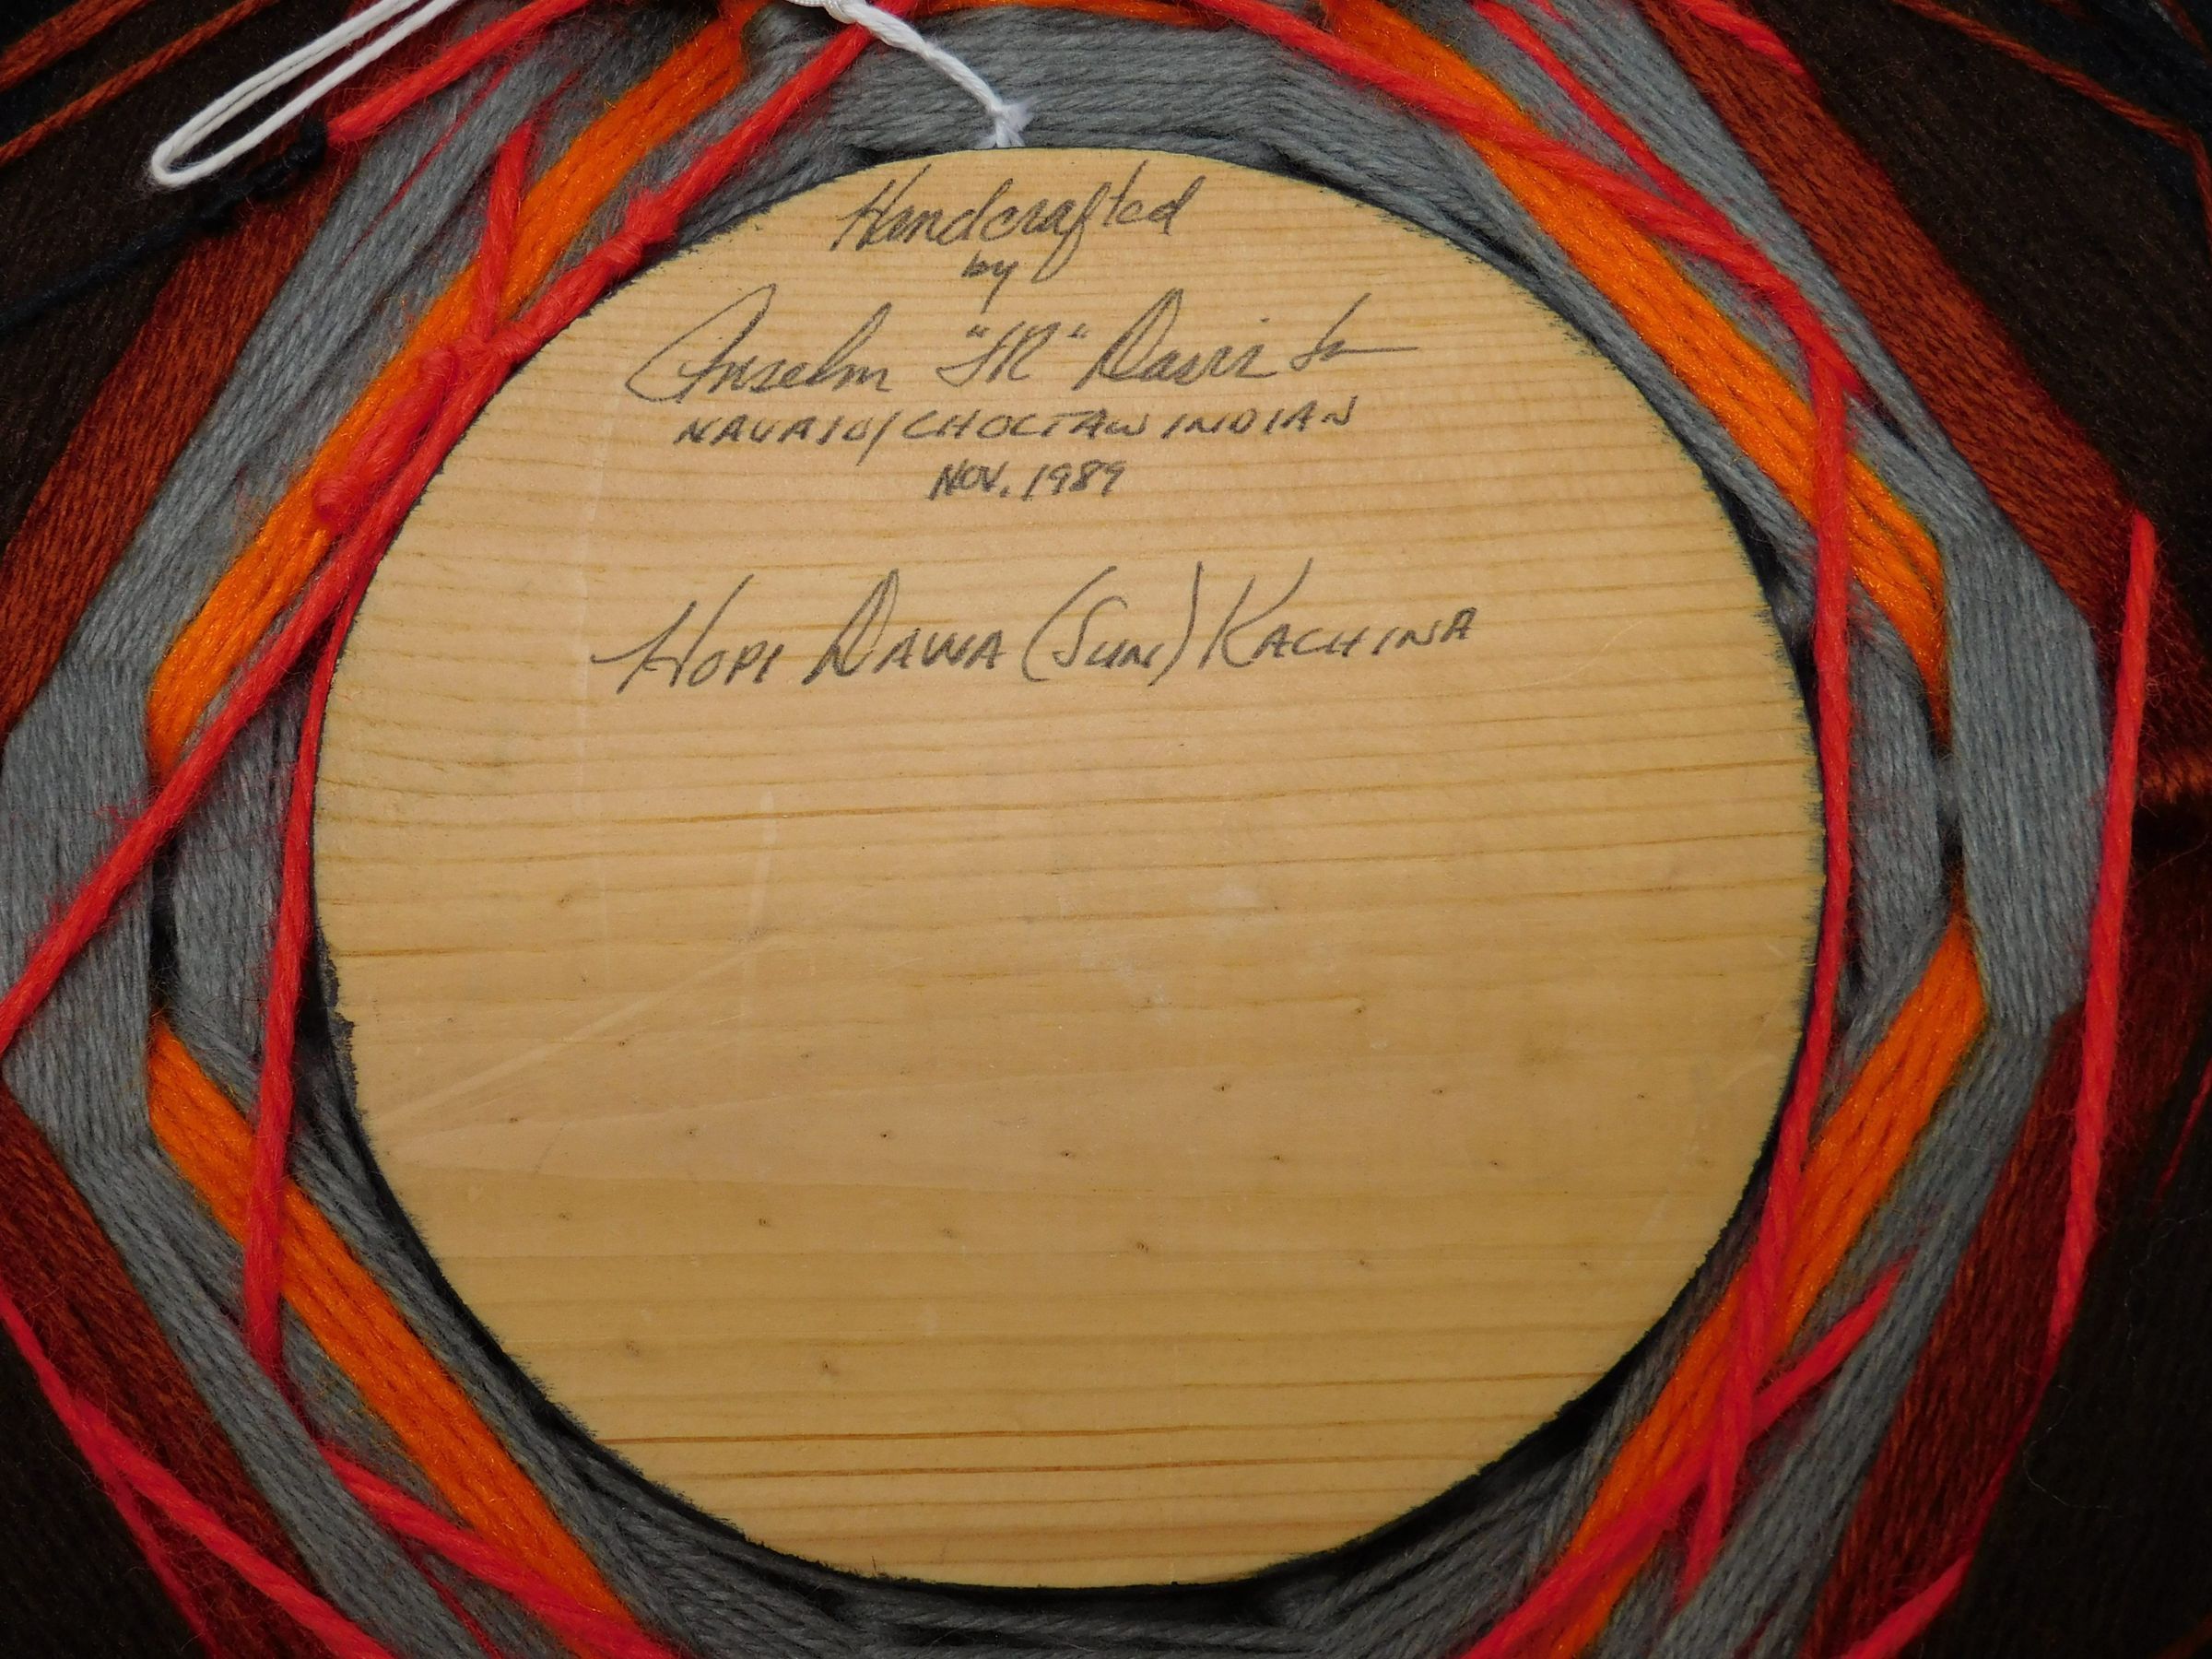 Handcrafted
by
Anselm "JR" Davis Jr
NAVAJO/CHOCTAW INDIAN
NOV. 1989
HOPI DAWA (SUN) KACHINA